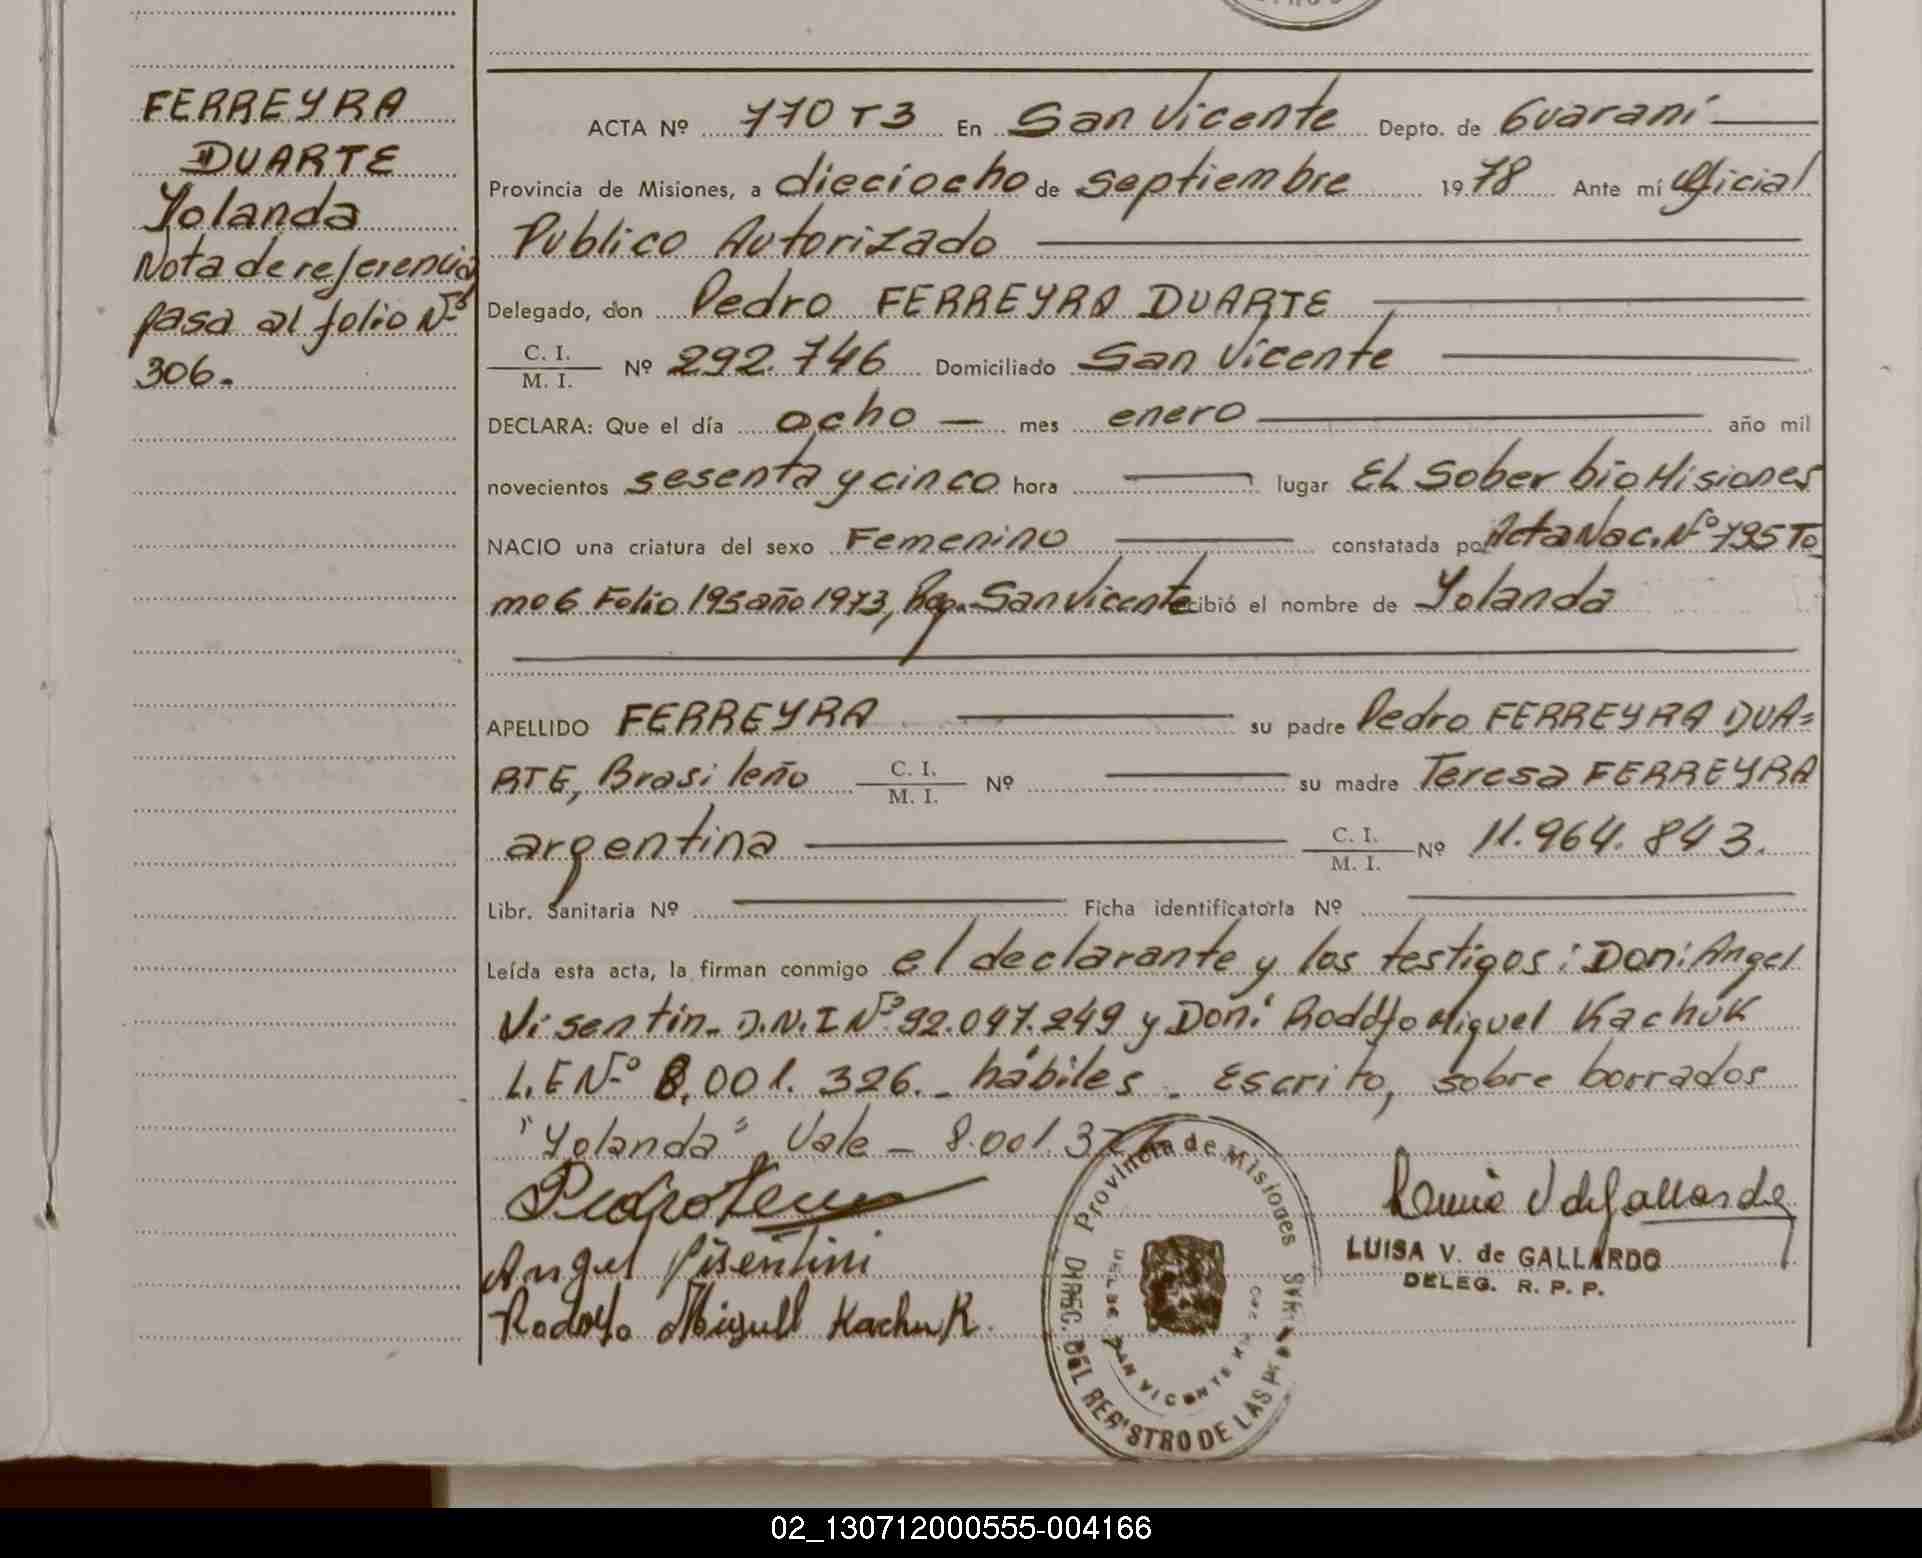 FERREYRA
DUARTE
Yolanda
Nota de referencia
pasa al folio Nº
306.
ACTA Nº 770 T 3 En San Vicente Depto. de Guaraní
Provincia de Misiones, a dieciocho de septiembre 1978 Ante mí Oficial
Publico Autorizado
Delegado, don Pedro FERREYRA DUARTE
C. I.
M. I. Nº 292.746 Domiciliado San Vicente
DECLARA: Que el día ocho — mes enero año mil
novecientos sesenta y cinco hora lugar EL Soberbio Misiones
NACIO una criatura del sexo Femenino constatada por Acta Nac. Nº 795 To
mo 6 Folio 195 año 1973, San Vicente recibió el nombre de Yolanda
APELLIDO FERREYRA su padre Pedro FERREYRA DUA=
RTE, Brasileño C. I. M. I. Nº su madre Teresa FERREYRA
argentina C. I. M. I. Nº 11.964.843.
Libr. Sanitaria Nº Ficha identificatoria Nº
Leída esta acta, la firman conmigo el declarante y los testigos: Don: Angel
Visentin. D.N.I Nº 92.047.249 y Don: Rodolfo Miguel Kachuk
L.E Nº 8.001.326. hábiles. Escrito, sobre borrados
"Yolanda" Vale — 8.001.326
Angel Visentini
Rodolfo Miguel Kachuk.
LUISA V. de GALLARDO
DELEG. R. P. P.
Provincia de Misiones
DIREC. DEL REGISTRO DE LAS
SAN VICENTE
02_130712000555-004166